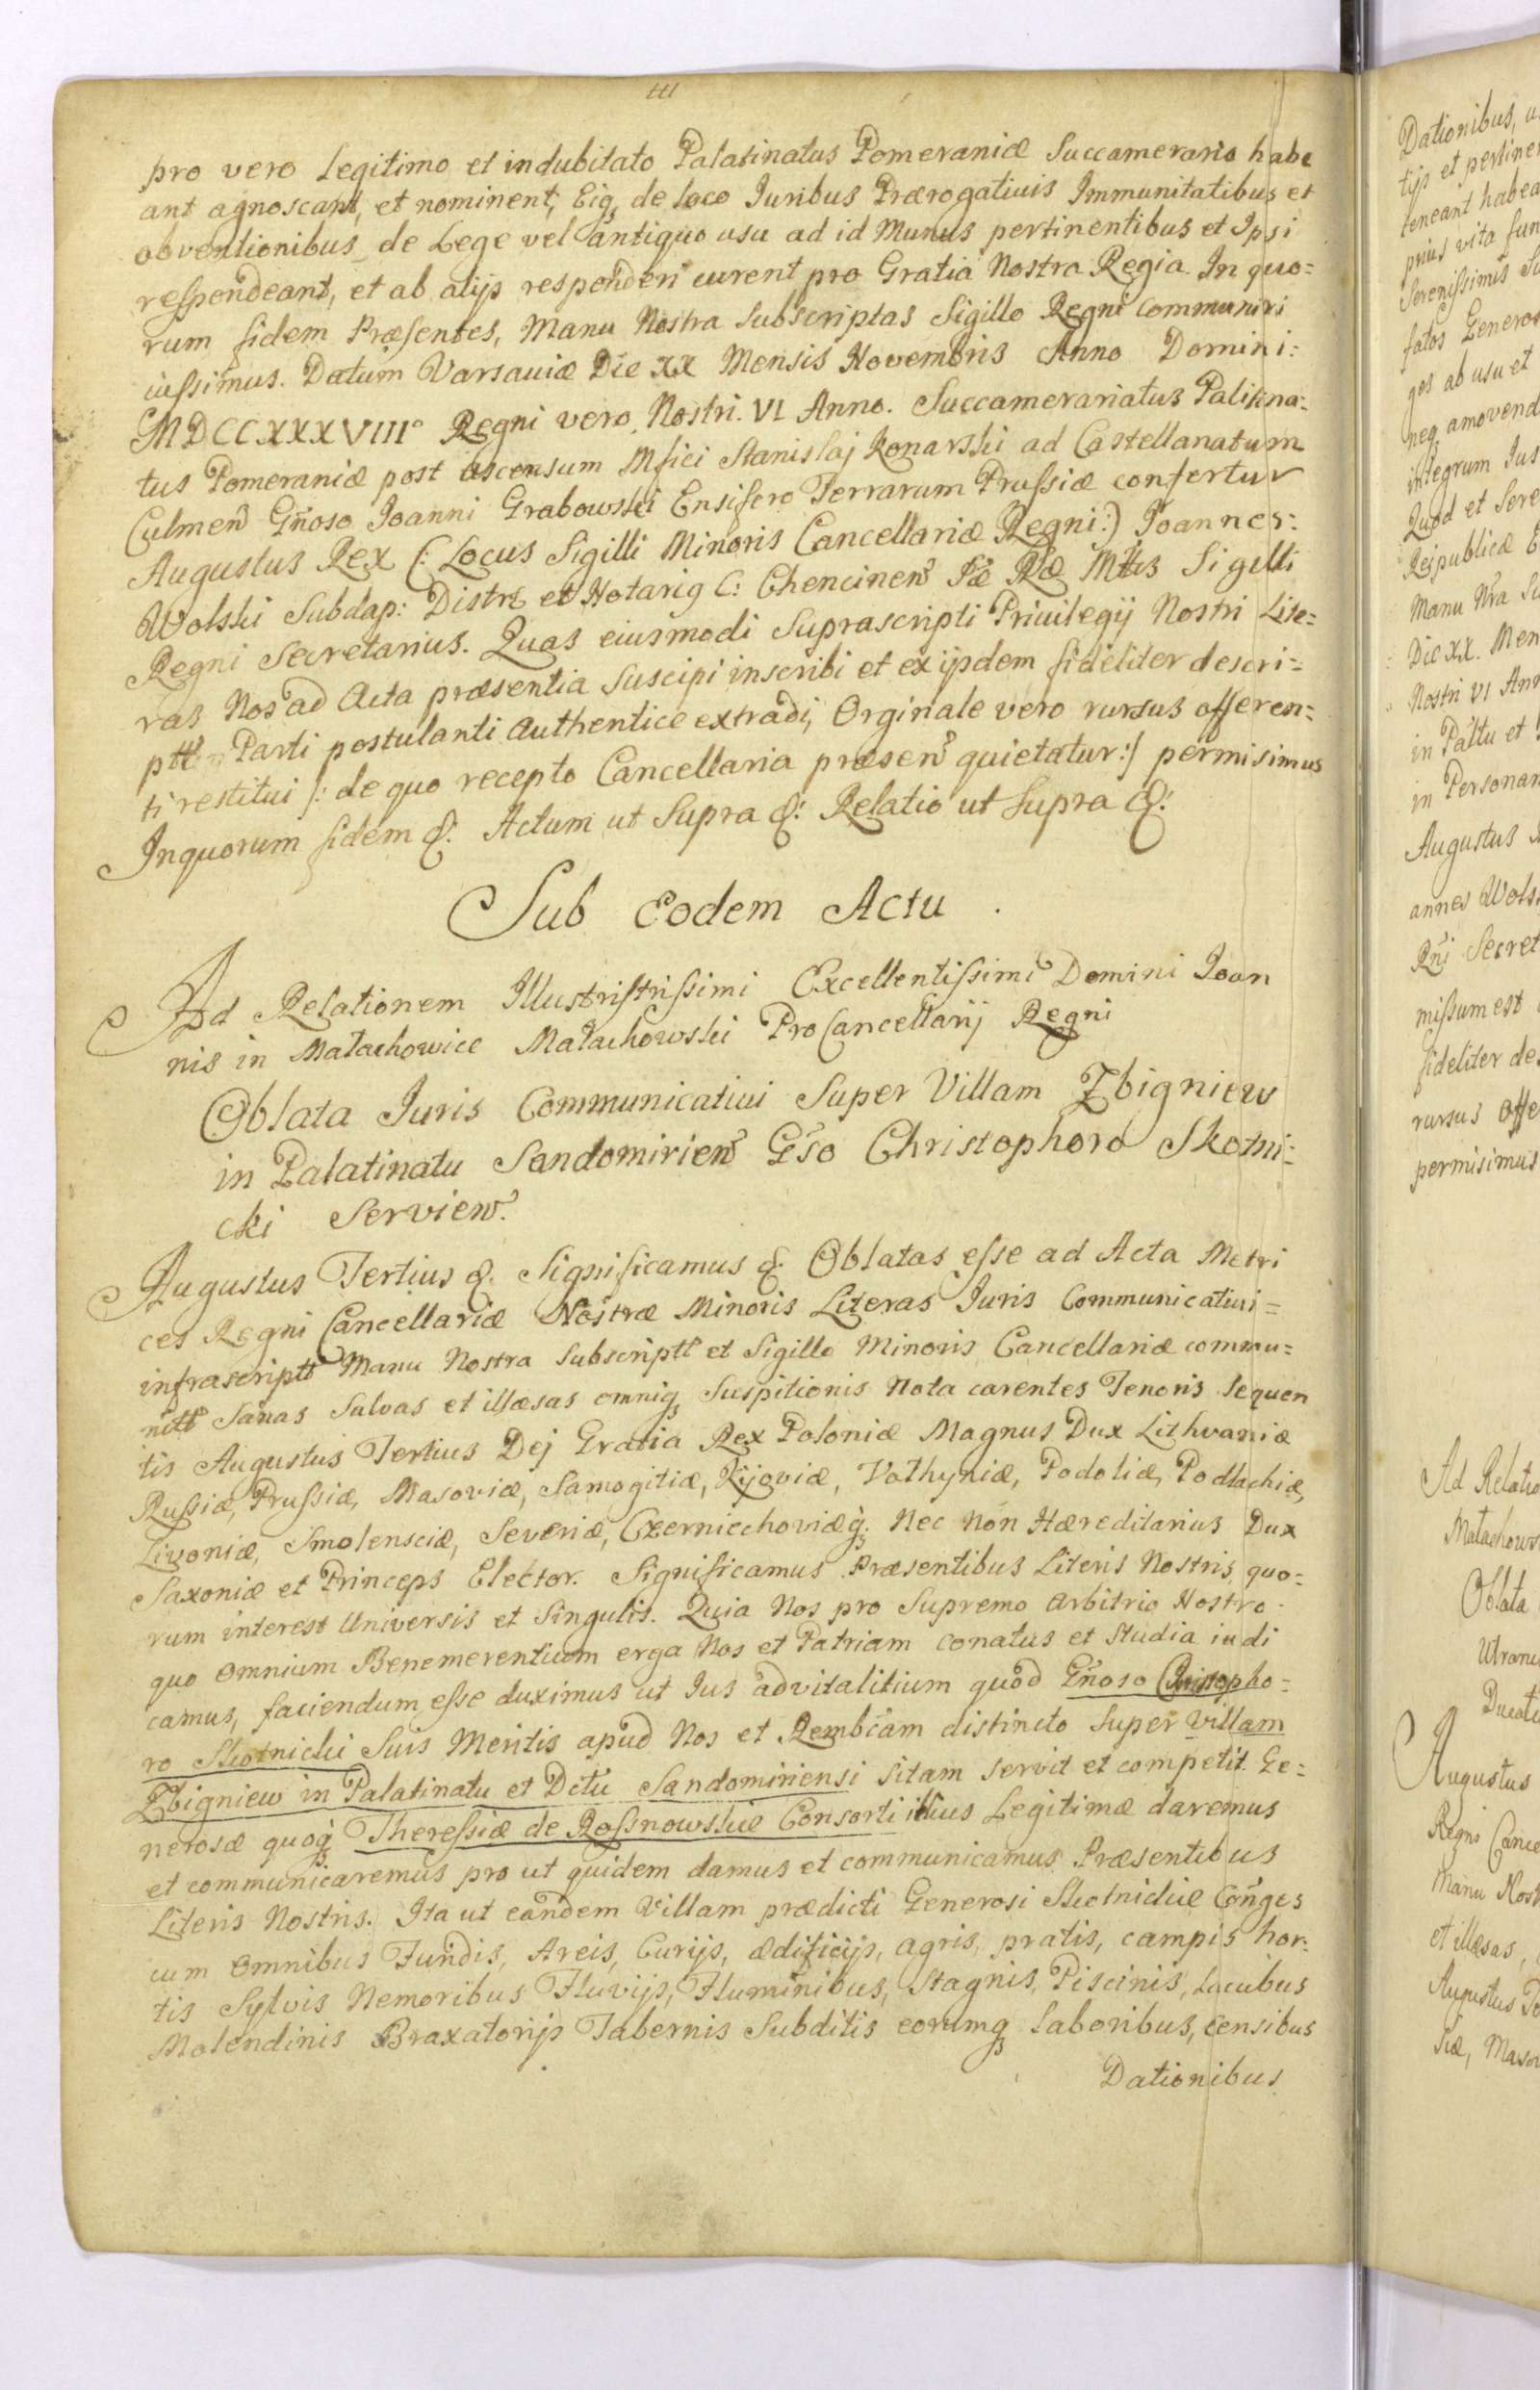 pro vero Legitimo et indubitato Palatinatus Pomeraniæ Succamerario habe
ant agnoscant, et nominent, Eiq, de loco Iuribus Prærogativis Immunitatibus et
obventionibus de Lege vel antiquo usu ad id Munus pertinentibus et Ipsi
respondeant, et ab alijs responderi curent pro Gratia Nostra Regia. In quo=
rum fidem Præsentes, Manu Nostra Subscriptas Sigillo Regni Communiri
iussimus. Datum Varsaviæ Die XX Mensis Novembris Anno Domini:
MDCCXXXVIII° Regni vero Nostri. VI Anno. Succamerariatus Palitina:
tus Pomeraniæ post ascensum Mfici Stanislaj Konarski ad Castellanatum
Culmen̄ Gn̄oso Joanni Grabowski Ensifero Terrarum Prussiæ confertur
Augustus Rex (: Locus Sigilli Minoris Cancellariæ Regni:) Joannes:
Wolski Subdap: Distrs et Notarig C: Chencinen̄ Sæ Ræ Mttis Sigilli
Regni Secretarius. Quas eiusmodi Suprascripti Privilegij Nostri Lite=
ras Nos ad Acta præsentia Suscipi inscribi et ex ijsdem fideliter descri=
ptt Parti postulanti Authentice extradi, Orginale vero rursus offeren=
ti restitui /: de quo recepto Cancellaria præsen̄ quietatur:/ permisimus
Inquorum fidem &. Actum ut Supra &: Relatio ut Supra &:
Sub eodem Actu .
Ad Relationem Illustristrissimi Excellentissimi Domini Ioan
nis in Małachowice Małachowski ProCancellarij Regni
Oblata Juris Communicativi Super Villam Zbigniew
in Palatinatu Sandomirien̄ Gs̄o Christophoro Skotni=
cki Servien̄.
Augustus Tertius &. Significamus &. Oblatas esse ad Acta Metri
ces Regni Cancellariæ Nostræ Minoris Literas Juris Communicativi=
infrascriptt Manu Nostra Subscriptt et Sigillo Minoris Cancellariæ commu=
nitt Sanas Salvas et illæsas omniq, Suspitionis Nota carentes Tenoris Sequen
tis Augustus Tertius Dej Gratia Rex Poloniæ Magnus Dux Lithvaniæ
Russiæ, Prussiæ, Masoviæ, Samogitiæ, Kijoviæ, Volhyniæ, Podoliæ, Podlachiæ,
Livoniæ, Smolensciæ, Severiæ, Czerniechoviæq. Nec non Hæreditarius Dux
Saxoniæ et Princeps Elector. Significamus Præsentibus Literis Nostris, quo=
rum interest Universis et Singulis. Quia Nos pro Supremo Arbitrio Nostro
quo Omnium Benemerentium erga Nos et Patriam conatus et Studia iudi
camus, faciendum esse duximus ut Ius advitalitium quod Gn̄oso Christopho=
ro Skotnicki Suis Meritis apud Nos et Rembc̄am distincto Super Villam
Zbigniew in Palatinatu et Dctu Sandomiriensi Sitam servit et competit. Ge=
nerosæ quoq, Theressiæ de Rossnowskie Consorti illius Legitimæ daremus
et communicaremus pro ut quidem damus et communicamus Præsentibus
Literis Nostris. Ita ut eandem Villam prædicti Generosi Skotnickie Con̄ges
cum Omnibus Fundis, Areis, Curijs, ædificijs, agris, pratis, campis hor=
tis Sylvis Nemoribus Fluvijs, Fluminibus, Stagnis, Piscinis, Lacubus
Molendinis Braxatorijs Tabernis Subditis eorumq, Laboribus, Censibus
Dationibus
Dationibus,
tijs et pertine
teneant habea
prius vita fun
Serenissimis
fatos Generos
ges ab usu et
neq, amovend
integrum Ius
Quod et Sere
Reipublicæ
Manu Nr̄a
Die XX. Men
Nostri VI Ann
in Palttu et
in Personam
Augustus
annes Wols
Rni Secret
missum est
fideliter de
rursus offe
permisimus
Ad Relatio
Małachows
Oblata
Ducat
Augustus
Regni Cance
Manu Nost
et illæsas,
Augustus
siæ, Maso